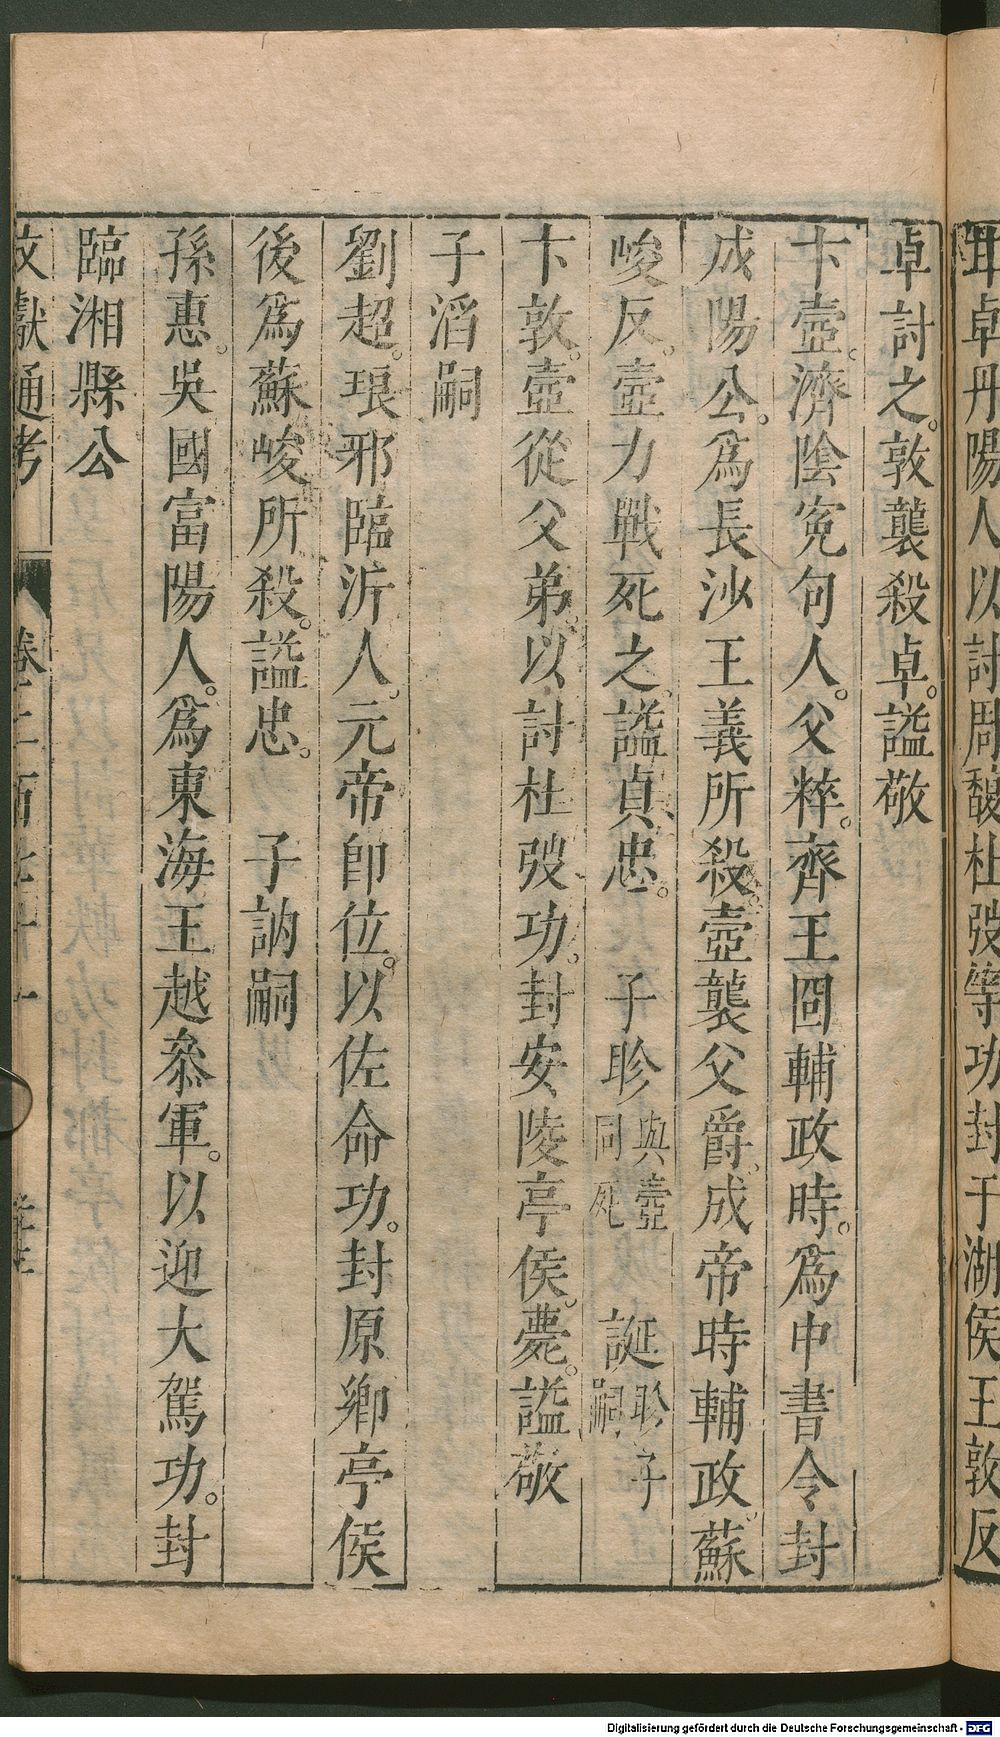 耳卓丹陽人以討周馥杜弢等功封于湖侯王敦反
卓討之。敦襲殺卓。謚敬
卞壼。濟陰寃句人。父粹。齊王冏輔政時。爲中書令封
成陽公。爲長沙王義所殺。壼襲父爵。成帝時輔政。蘇
峻反。壼力戰死之。謚貞忠。 子眕 與壼同死 誕 眕子嗣
卞敦。壼從父弟。以討杜弢功。封安陵亭侯。薨。謚敬
子滔嗣
劉超。琅邪臨沂人。元帝卽位。以佐命功。封原鄉亭侯
後爲蘇峻所殺。謚忠。 子訥嗣
孫惠。吳國富陽人。爲東海王越叅軍。以迎大駕功。封
臨湘縣公
文獻通考 卷二百七十一
Digitalisierung gefördert durch die Deutsche Forschungsgemeinschaft - DFG